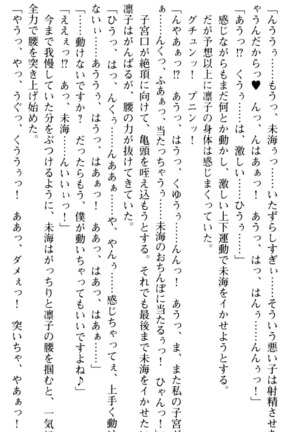 「んううぅ　もうっ、未海ぅ……いたずらしすぎぃ……そういう悪い子は射精させち
ゃうんだからっ♥　んっ、んはぁあっ！　あうっ、はっ、はんぅ……んんぅっ！」
「くううっ!?　くうぅ……は、激しい……ひうぅっ！」
感じながらもまだ何とか動かし、激しい上下運動で未海をイかせようとする。
だが予想以上に凛子の身体は感じまくっていた。
グチュンッ！　プニンッ！
「んやあぁっ!?　あうっ、はうっ、くゆうぅ……んっ！　あうっ、ま、また私の子宮が
ぁ……んくっ、ふあぁっ、当たっちゃうぅ……未海のおちんぽに当たるぅっ！　ひゃんっ！」
子宮口が絶頂に向けて、亀頭を咥え込もうとする。それでも最後まで未海をイかせたい
凛子はがんばるが、腰の力が抜けてきていた。
「ひうっ、はっ、んくぅ……んああぁっ！　や、やんぅ……感じちゃってぇ、上手く動け
ないぃ……あううぅ、はうっ、はあぁっ、はうぅ……」
「……動けないですか？　だったらもう、僕が動いちゃってもいいですよね♪」
「ええぇっ!?　あっ、未海……んいいぃっ！」
今まで我慢していた分をぶつけるように、未海はがっちりと凛子の腰を掴むと、一気に
全力で腰を突き上げ始めた。
「やうっ、やっ、うぐっ、くううぅっ！　ああっ、ダメぇっ！　突いちゃ、やあぁっ！